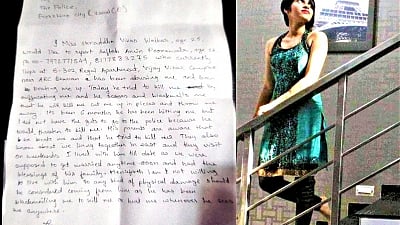 The Police,
city (
I Miss Shraddha Vikas Walkar, age 25
would like to report Aaftab Amin Poonawala, age 26
who currently
lives at B-302, Regal Apartment, Vijay Vihar Complex
near been abusing me, and has
beating me up Today he tried to kill me
suffocating me and he scares and blackmails me
that he will kill me, cut me up in pieces and throw me
away. Its been 6 months he has been hitting me but
I did not have the guts to go to the police because he
would threaten to kill me. His parents are aware that
he beats me and that he tried to kill me. They also
know about we living together in east and they visit
on weekends. I lived with him till date as we were
supposed to get married anytime soon and had the
blessings of his family. Henceforth I am not willing
to live with him so any kind of physical damage should
be considered coming from him as he has been
blackmailing me to kill me or hurt me whenever he sees
me anywhere.